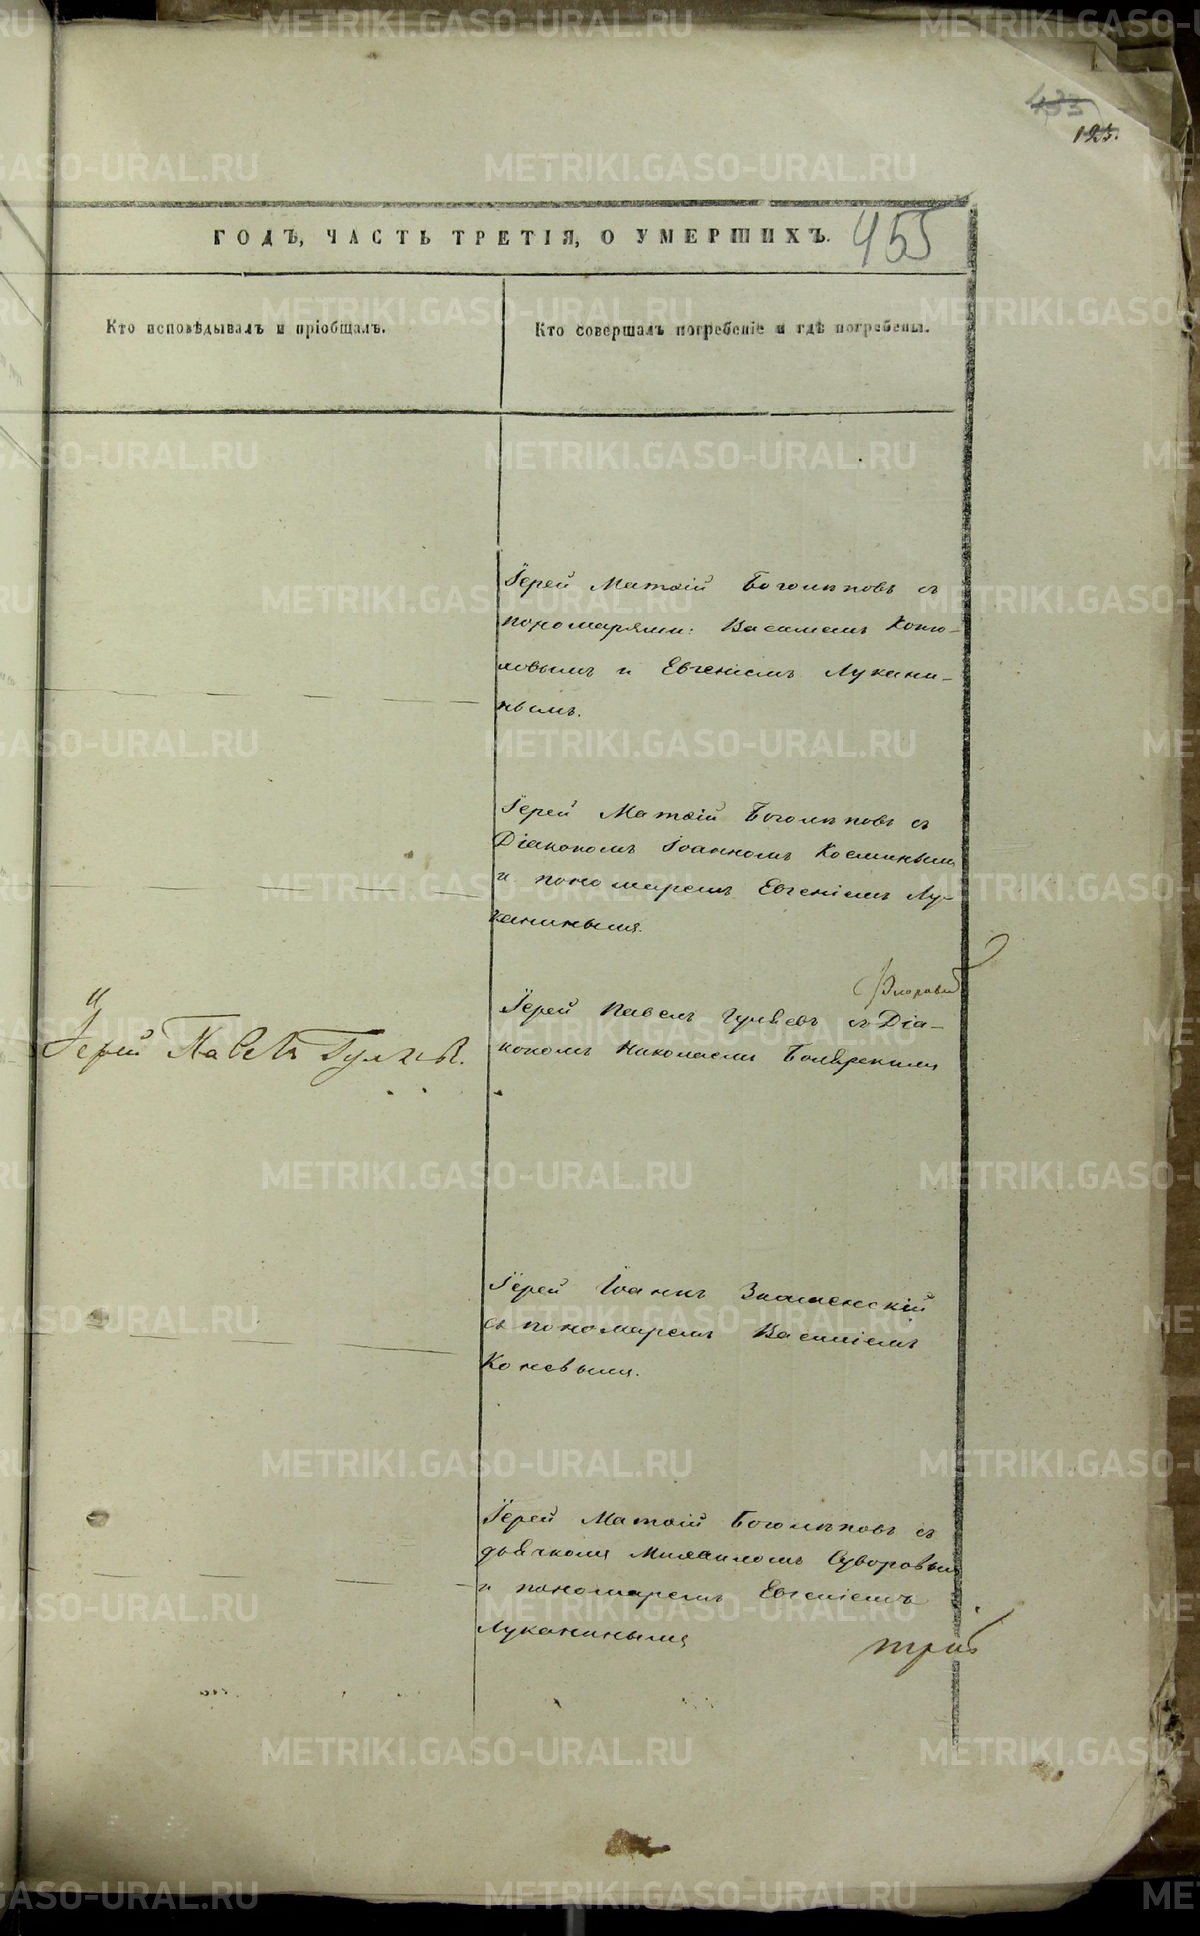 433
123.
455
ГОДЪ, ЧАСТЬ ТРЕТІЯ, О УМЕРШИХЪ.
Кто исповѣдывалъ и пріобщалъ.
Кто совершалъ погребеніе и гдѣ погребены.
Іерей Матѳій Боголѣповъ съ
пономарями: Василіемъ Коню-
ховымъ и Евгеніемъ Лукани-
нымъ.
Іерей Матѳій Боголѣповъ съ
Діакономъ Іоанномъ Косминымъ
и пономаремъ Евгеніемъ Лу-
канинымъ.
Іерей Павелъ Гуляевъ
Іерей Павелъ Гуляевъ съ Діа-
кономъ Николаемъ Боярскимъ
Іерей Іоаннъ Знаменскій
съ пономаремъ Василіемъ
Коневымъ.
Іерей Матѳій Боголѣповъ съ
дьячкомъ Михаиломъ Суворовым
и пономаремъ Евгеніемъ
Луканинымъ
METRIKI.GASO-URAL.RU